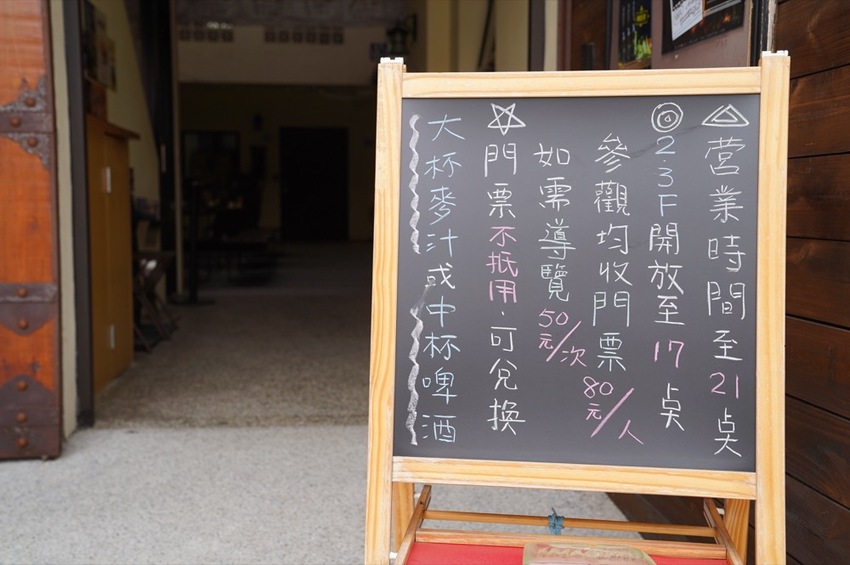 營業時間至21点
2.3F開放至17点
參觀均收門票80元/人
如需導覽50元/次
門票不抵用，可兌換
大杯麥汁或中杯啤酒